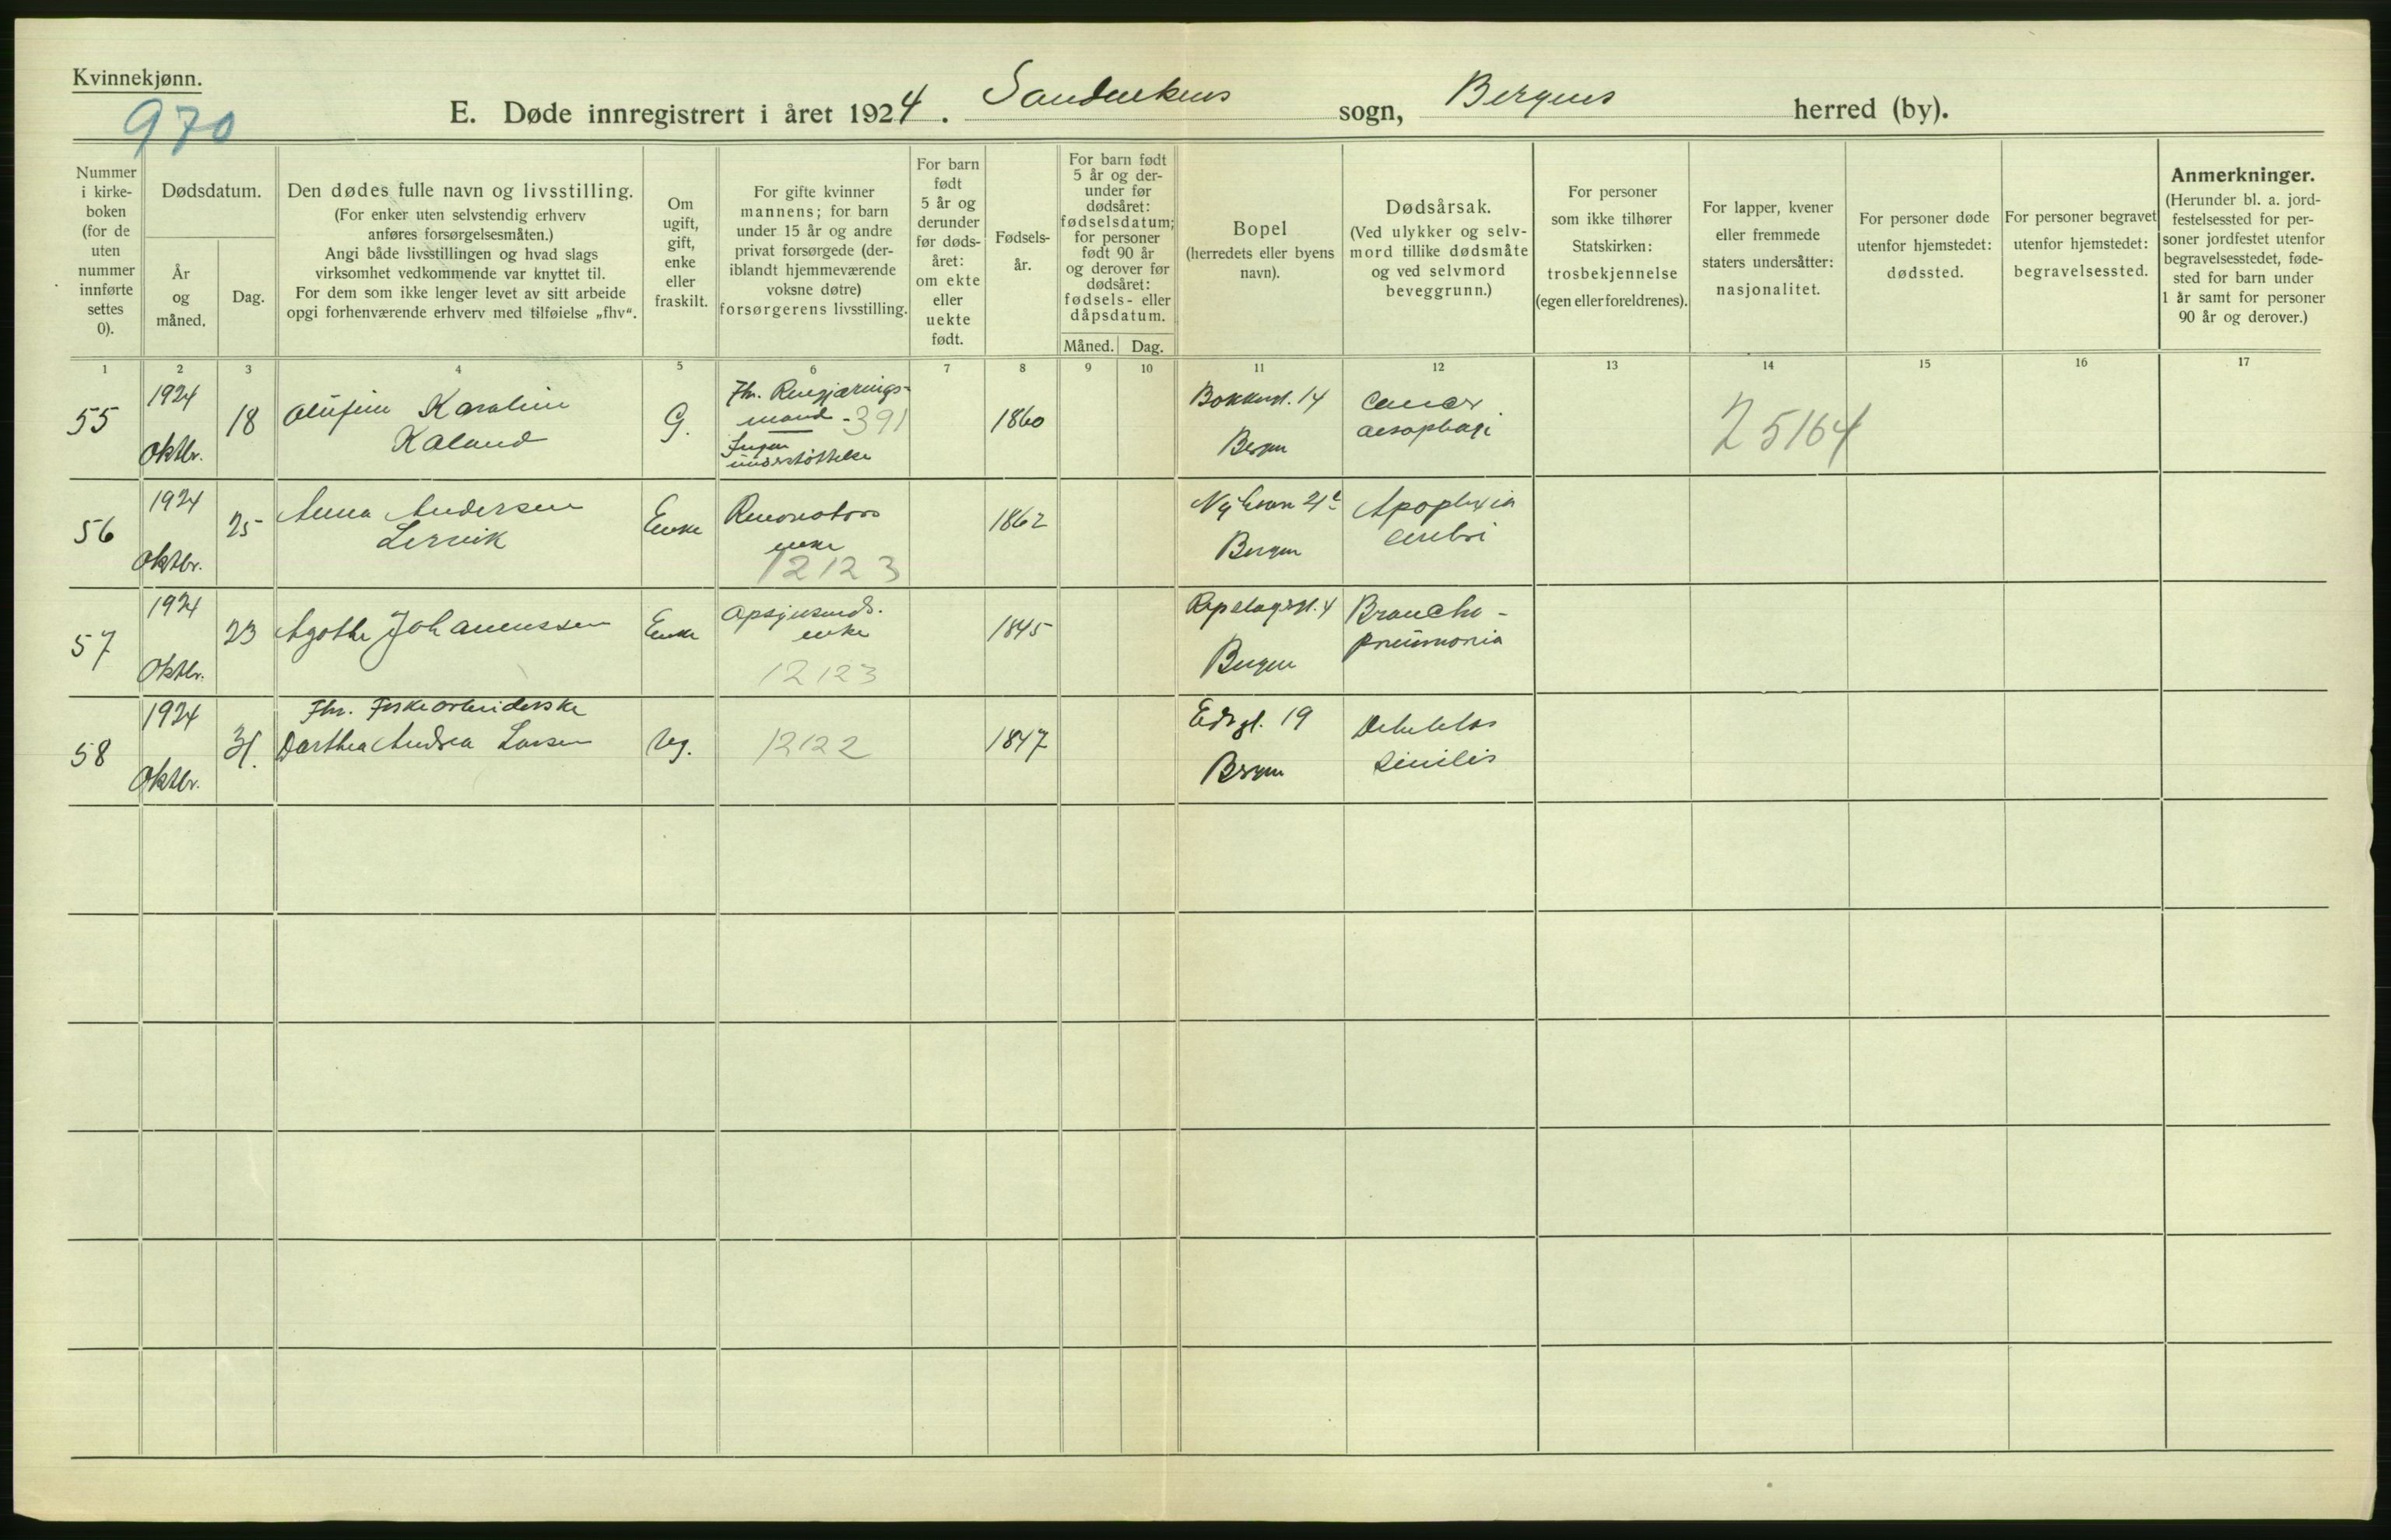 Kvinnekjønn.
970
E. Døde innregistrert i året 1924. Sandvikens sogn, Bergens herred (by).
Nummer i kirke- boken (for de uten nummer innførte settes 0).
Dødsdatum.
År og måned.
Dag.
Den dødes fulle navn og livsstilling.
(For enker uten selvstendig erhverv
anføres forsørgelsesmåten.)
Angi både livsstillingen og hvad slags
virksomhet vedkommende var knyttet til.
For dem som ikke lenger levet av sitt arbeide
opgi forhenværende erhverv med tilføielse „fhv“.
Om ugift, gift, enke eller fraskilt.
For gifte kvinner
mannens; for barn
under 15 år og andre
privat forsørgede (der-
iblandt hjemmeværende
voksne døtre)
forsørgerens livsstilling.
For barn født 5 år og derunder før døds- året: om ekte eller uekte født.
Fødsels- år.
For barn født
5 år og der-
under før
dødsåret:
fødselsdatum;
for personer
født 90 år
og derover før
dødsåret:
fødsels- eller
dåpsdatum.
Måned. Dag.
Bopel
(herredets eller byens
navn).
Dødsårsak.
(Ved ulykker og selv-
mord tillike dødsmåte
og ved selvmord
beveggrunn.)
For personer
som ikke tilhører
Statskirken:
trosbekjennelse
(egen eller foreldrenes).
For lapper, kvener
eller fremmede
staters undersåtter:
nasjonalitet.
For personer døde
utenfor hjemstedet:
dødssted.
For personer begravet
utenfor hjemstedet:
begravelsessted.
Anmerkninger.
(Herunder bl. a. jord-
festelsessted for per-
soner jordfestet utenfor
begravelsesstedet, føde-
sted for barn under
1 år samt for personer
90 år og derover.)
1 2 3 4 5 6 7 8 9 10 11 12 13 14 15 16 17
55
1924
Oktbr.
18
Olufine Karoline
Kaland
G.
Fhv. Rengjørings-
mand - 391
Ingen
understøttelse
1860
Bergen
Cancer
aesophagi
25164
56
1924
Oktbr.
25
Anna Andersen
Lervik
Enke
Renovatørs
enke
12123
1862
Bergen
Apoplexia
cerebri
57
1924
Oktbr.
23
Agathe Johannessen
Enke
Opsynsmds.
enke
12123
1845
Repslagergt. 4
Bergen
Broncho-
pneumonia
58
1924
Oktbr.
31.
Fhv. Fiskearbeiderske
Dorthea Andrea Larsen
Ug.
12122
1847
19
Bergen
Debilitas
senilis